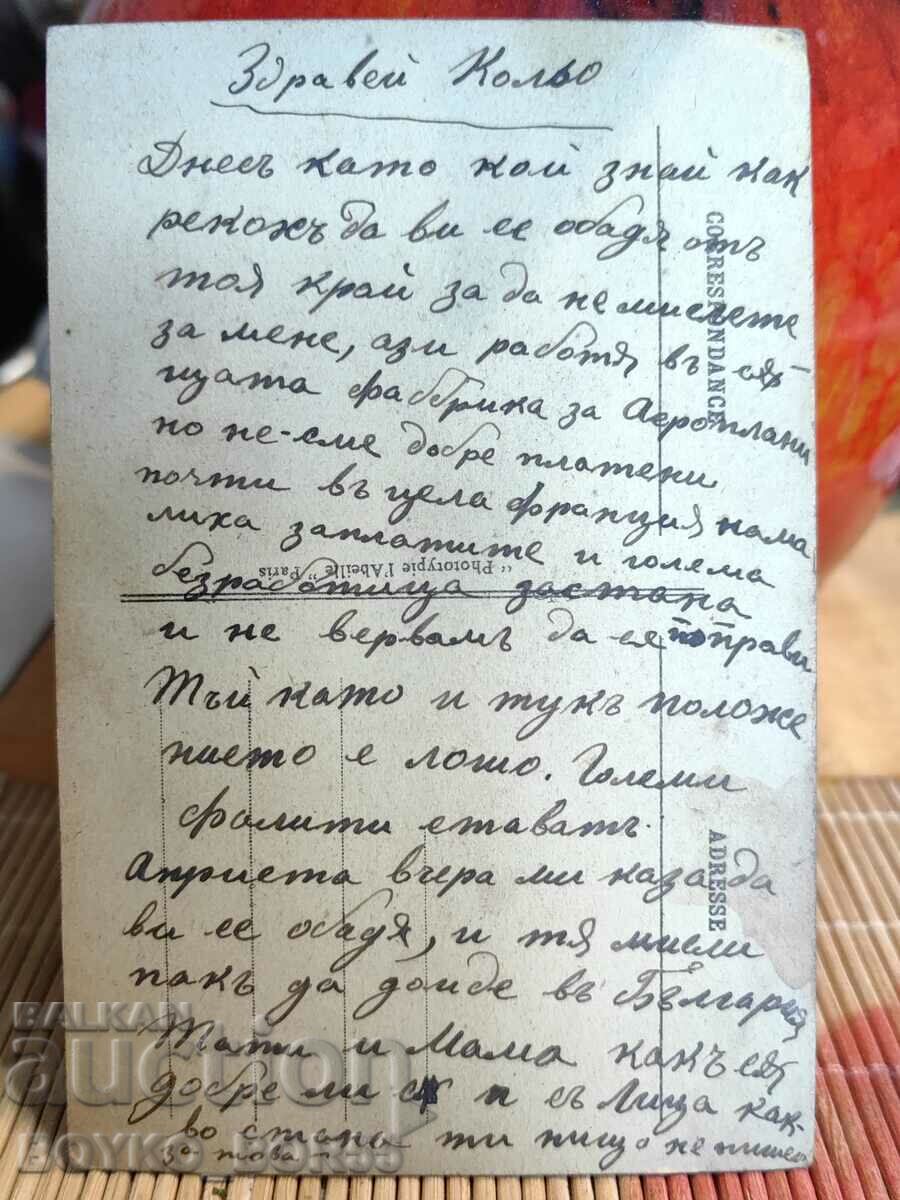 Здравей Кольо
Днесъ като кой знай как
рекохъ да ви се обадя отъ
тоя край за да не мислете
за мене, ази работя въ ся-
щата фаббрика за Аероплани
но не-сме добре платени
почти въ цела Франция нама
лиха заплатите и голема
безработица застана
и не вервамъ да ся поправи
Тъй като и тукъ положе
нието е лошо. Големи
фалити ставатъ.
Анриета вчера ми каза да
ви се обадя, и тя мисли
пакъ да дойде въ България
Тати и Мама какъ ся
добре ли и съ Лица как-
во стана ти нищо не пишеш
за това -
CORRESPONDANCE
ADRESSE
"Phototypie l'Abeille" Paris
BALKAN
auction
BOYKO BOR55